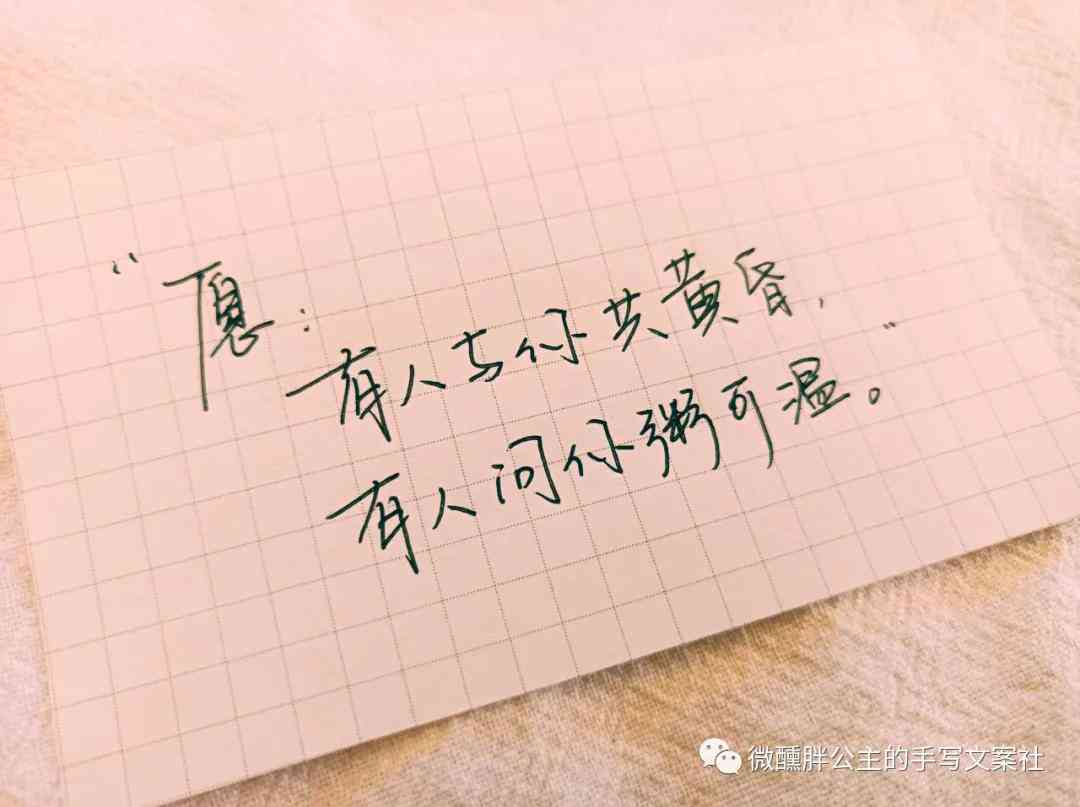 “愿：
有人与你共黄昏，
有人问你粥可温。”
微醺胖公主的手写文案社